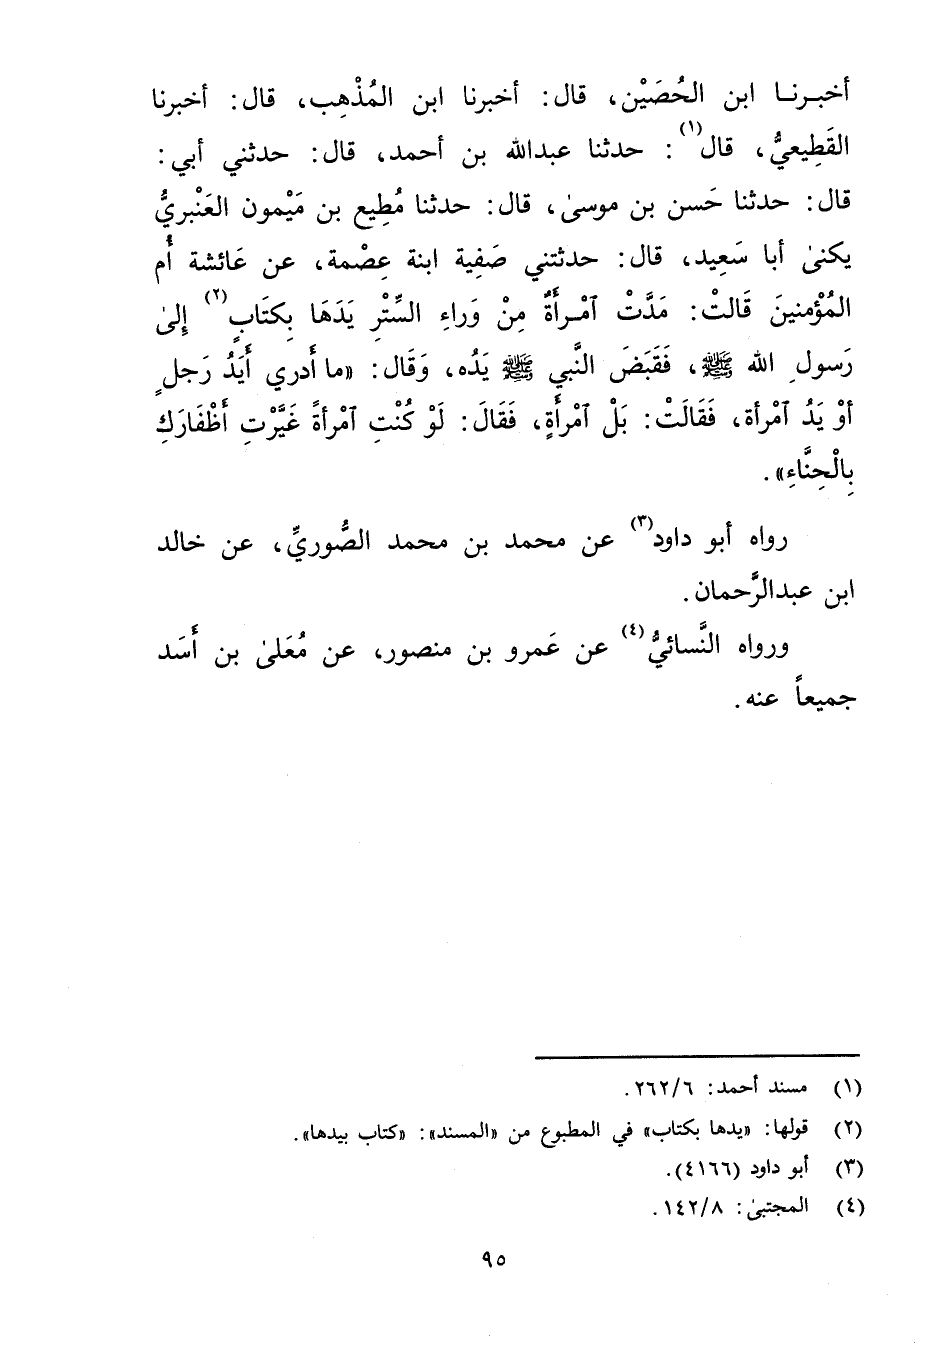 أخبرنا ابن الحُصَيْن، قال: أخبرنا ابن المُذْهِب، قال: أخبرنا
القَطِيعيُّ، قال(١): حدثنا عبدالله بن أحمد، قال: حدثني أبي:
قال: حدثنا حَسن بن موسىٰ، قال: حدثنا مُطِيع بن مَيْمون العَنْبريُّ
يكنىٰ أبا سَعِيد، قال: حدثتني صَفِية ابنة عِصْمة، عن عَائشة أُم
المُؤْمنينَ قَالتْ: مَدَّتْ ٱمْرأَةٌ مِنْ وَراءِ السِّتْرِ يَدَهَا بِكتَابٍ(٢) إِلىٰ
رَسولِ الله ﷺ، فَقَبَضَ النَّبي ﷺ يَدُه، وَقَال: «ما أَدري أَيَدُ رَجلٍ
أوْ يَدُ ٱمْرأة، فَقَالَتْ: بَلْ ٱمْرأَةٍ، فَقَالَ: لَوْ كُنْتِ ٱمْرأةً غَيَّرْتِ أَظْفَارَكِ
بِالْحِنَّاءِ».
رواه أبو داود(٣) عن محمد بن محمد الصُّوريِّ، عن خالد
ابن عبدالرَّحمان.
ورواه النَّسائيُّ(٤) عن عَمرو بن منصور، عن مُعَلىٰ بن أَسَد
جميعاً عنه.
(١) مسند أحمد: ٢٦٢/٦.
(٢) قولها: «يدها بكتاب» في المطبوع من «المسند»: «كتاب بيدها».
(٣) أبو داود (٤١٦٦).
(٤) المجتبىٰ: ١٤٢/٨.
٩٥